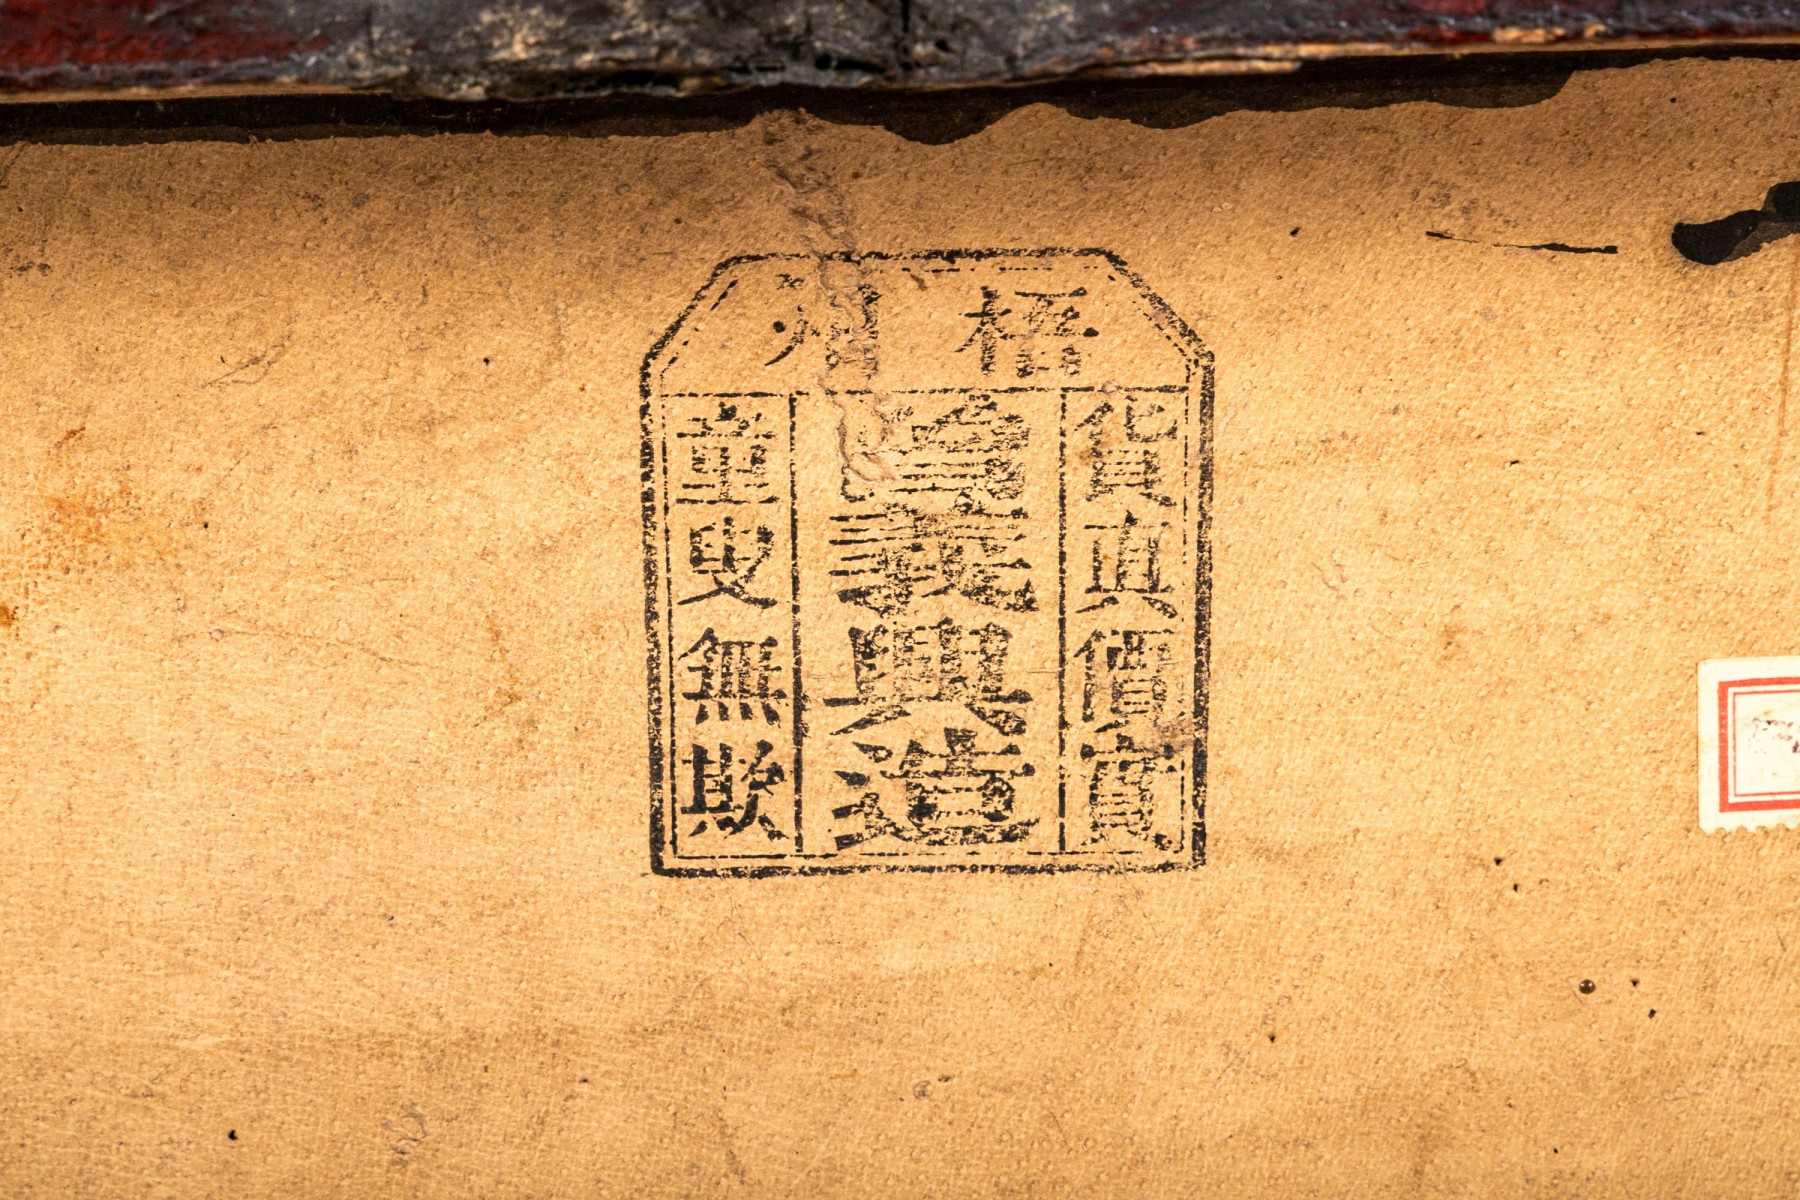 梧州
貨真價實
義興造
童叟無欺